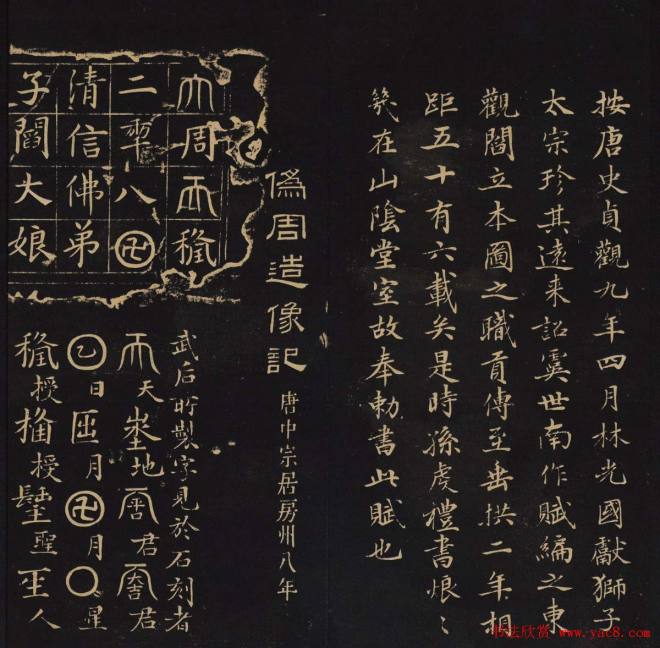 按唐史貞觀九年四月林光國獻獅子
太宗珍其遠来詔虞世南作賦編之東
觀閻立本圖之職貢傳至垂拱二年相
距五十有六載矣是時孫虔禮書
在山陰堂室故奉勅書此賦也
偽周造像記
唐中宗居房州八年
大周𠀑
二𠡦八卍
清信佛弟
子閻大娘
武后所製字見於石刻者
𠀑天埊地君君
乙日𠥱月卍月〇星
授授聖𤯔人
书法欣赏 www.yac8.com